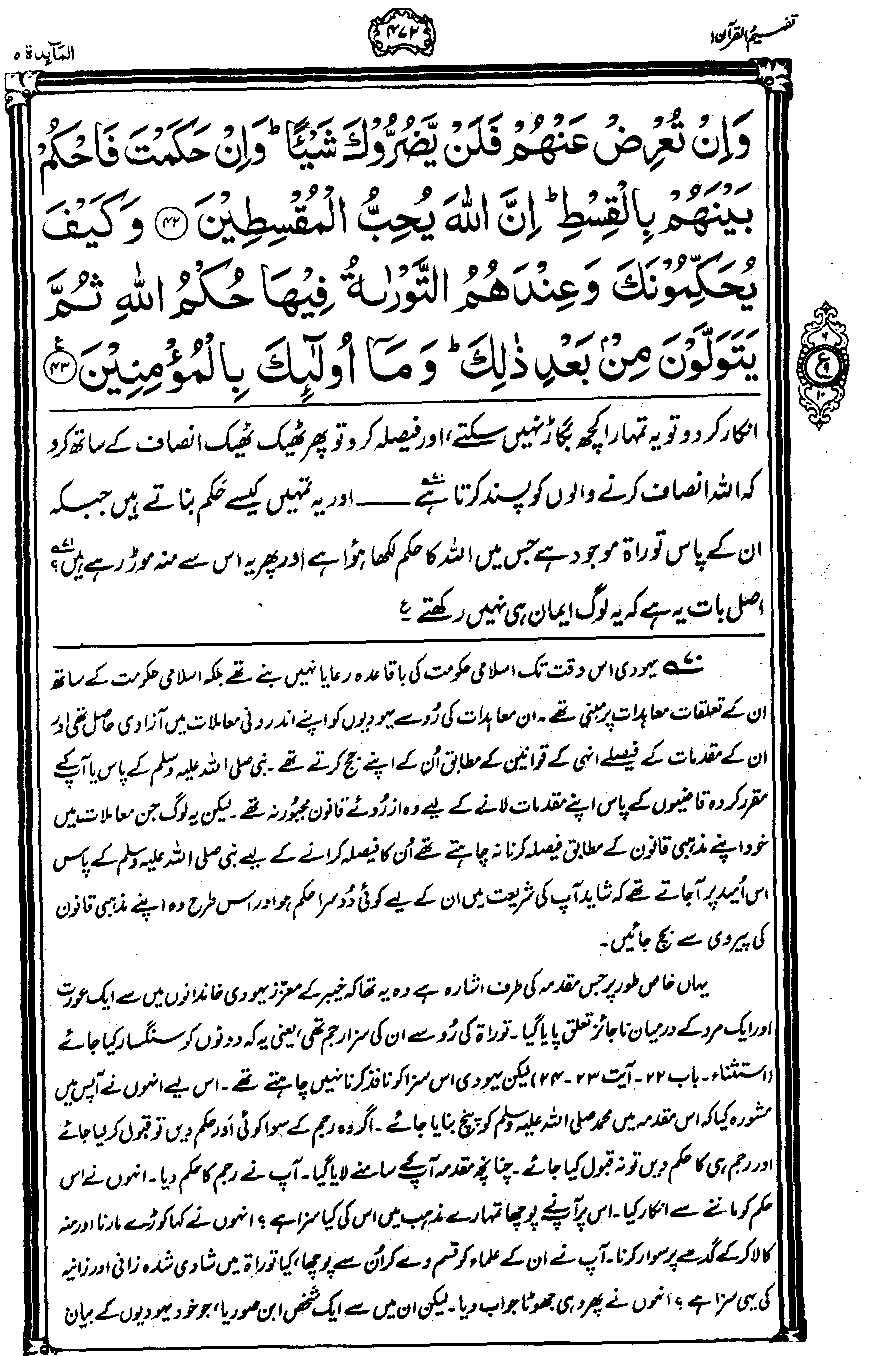 تفہیم القرآن ۱
۴۷۲
المآئدۃ ۵
وَاِنْ تُعْرِضْ عَنْهُمْ فَلَنْ يَّضُرُّوْكَ شَيْـًٔا ؕ وَاِنْ حَكَمْتَ فَاحْكُمْ
بَيْنَهُمْ بِالْقِسْطِ ؕ اِنَّ اللّٰهَ يُحِبُّ الْمُقْسِطِيْنَ ﴿۴۲﴾ وَكَيْفَ
يُحَكِّمُوْنَكَ وَعِنْدَهُمُ التَّوْرٰىةُ فِيْهَا حُكْمُ اللّٰهِ ثُمَّ
يَتَوَلَّوْنَ مِنْۢ بَعْدِ ذٰلِكَ ؕ وَمَآ اُولٰٓئِكَ بِالْمُؤْمِنِيْنَ ﴿۴۳﴾ ع
انکار کر دو تو یہ تمہارا کچھ بگاڑ نہیں سکتے، اور فیصلہ کرو تو پھر ٹھیک ٹھیک انصاف کے ساتھ کرو
کہ اللہ انصاف کرنے والوں کو پسند کرتا ہے۷۰ ــــــ اور یہ تمہیں کیسے حَکم بناتے ہیں جبکہ
ان کے پاس توراۃ موجود ہے جس میں اللہ کا حکم لکھا ہوُا ہے اور پھر یہ اس سے منہ موڑ رہے ہیں؟۷۱
اصل بات یہ ہے کہ یہ لوگ ایمان ہی نہیں رکھتے ؏
۷۰ یہودی اس وقت تک اسلامی حکومت کی باقاعدہ رعایا نہیں بنے تھے بلکہ اسلامی حکومت کے ساتھ
ان کے تعلقات معاہدات پر مبنی تھے۔ ان معاہدات کی رُو سے یہودیوں کو اپنے اندرونی معاملات میں آزادی حاصل تھی اور
ان کے مقدمات کے فیصلے انہی کے قوانین کے مطابق اُن کے اپنے جج کرتے تھے۔ نبی صلی اللہ علیہ وسلم کے پاس یا آپ کے
مقرر کردہ قاضیوں کے پاس اپنے مقدمات لانے کے لیے وہ از رُوئے قانون مجبور نہ تھے۔ لیکن یہ لوگ جن معاملات میں
خود اپنے مذہبی قانون کے مطابق فیصلہ کرنا نہ چاہتے تھے اُن کا فیصلہ کرانے کے لیے نبی صلی اللہ علیہ وسلم کے پاس
اس اُمید پر آجاتے تھے کہ شاید آپ کی شریعت میں ان کے لیے کوئی دُوسرا حکم ہو اور اس طرح وہ اپنے مذہبی قانون
کی پیروی سے بچ جائیں۔
یہاں خاص طور پر جس مقدمہ کی طرف اشارہ ہے وہ یہ تھا کہ خیبر کے معزز یہودی خاندانوں میں سے ایک عورت
اور ایک مرد کے درمیان ناجائز تعلق پایا گیا۔ توراۃ کی رُو سے ان کی سزا رجم تھی، یعنی یہ کہ دونوں کو سنگسار کیا جائے
(استثناء۔ باب ۲۲۔ آیت ۲۳-۲۴) لیکن یہودی اس سزا کو نافذ کرنا نہیں چاہتے تھے۔ اس لیے انہوں نے آپس میں
مشورہ کیا کہ اس مقدمہ میں محمد صلی اللہ علیہ وسلم کو پنچ بنایا جائے۔ اگر وہ رجم کے سوا کوئی اَور حکم دیں تو قبول کر لیا جائے
اور رجم ہی کا حکم دیں تو نہ قبول کیا جائے۔ چنانچہ مقدمہ آپ کے سامنے لایا گیا۔ آپ نے رجم کا حکم دیا۔ انہوں نے اس
حکم کو ماننے سے انکار کیا۔ اس پر آپ نے پوچھا تمہارے مذہب میں اس کی کیا سزا ہے؟ انہوں نے کہا کوڑے مارنا اور منہ
کالا کر کے گدھے پر سوار کرنا۔ آپ نے ان کے علماء کو قسم دے کر اُن سے پوچھا، کیا توراۃ میں شادی شدہ زانی اور زانیہ
کی یہی سزا ہے؟ انہوں نے پھر وہی جھوٹا جواب دیا۔ لیکن ان میں سے ایک شخص ابن صوریا، جو خود یہودیوں کے بیان